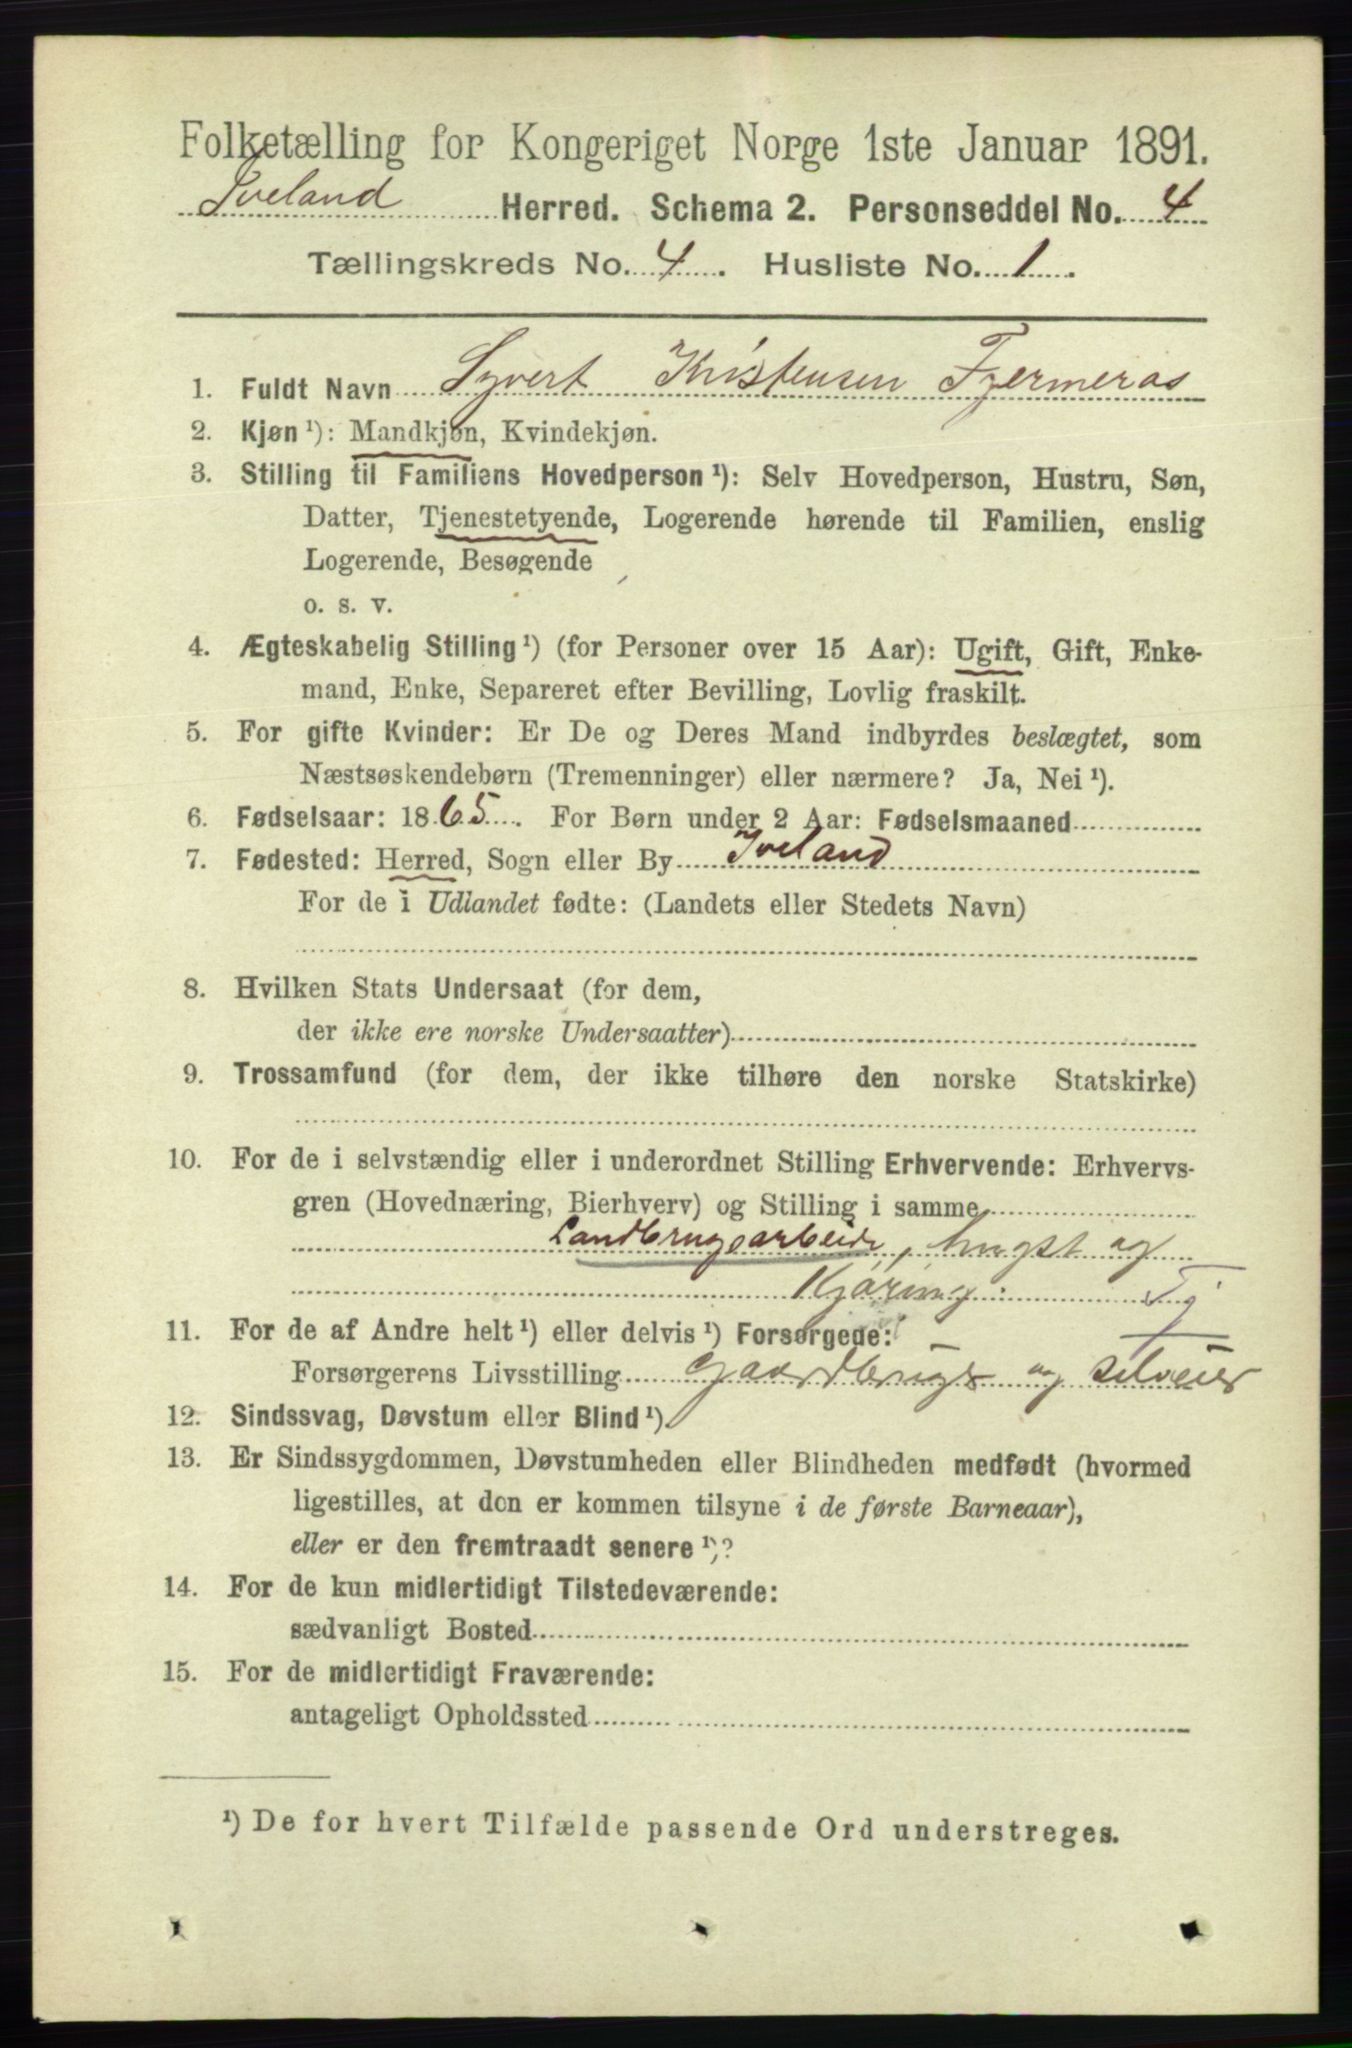 Folketælling for Kongeriget Norge 1ste Januar 1891.
Iveland Herred. Schema 2. Personseddel No. 4
Tællingskreds No. 4. Husliste No. 1.
1. Fuldt Navn Syvert Kristensen Fjermeros
2. Kjøn ¹): Mandkjøn, Kvindekjøn.
3. Stilling til Familiens Hovedperson ¹): Selv Hovedperson, Hustru, Søn,
Datter, Tjenestetyende, Logerende hørende til Familien, enslig
Logerende, Besøgende
o. s. v.
4. Ægteskabelig Stilling ¹) (for Personer over 15 Aar): Ugift, Gift, Enke-
mand, Enke, Separeret efter Bevilling, Lovlig fraskilt.
5. For gifte Kvinder: Er De og Deres Mand indbyrdes beslægtet, som
Næstsøskendebørn (Tremenninger) eller nærmere? Ja, Nei ¹).
6. Fødselsaar: 1865. For Børn under 2 Aar: Fødselsmaaned
7. Fødested: Herred, Sogn eller By Iveland
For de i Udlandet fødte: (Landets eller Stedets Navn)
8. Hvilken Stats Undersaat (for dem,
der ikke ere norske Undersaatter)
9. Trossamfund (for dem, der ikke tilhøre den norske Statskirke)
10. For de i selvstændig eller i underordnet Stilling Erhvervende: Erhvervs-
gren (Hovednæring, Bierhverv) og Stilling i samme
Landbrugsarbeide, hugst og
Kjøring. Tj
11. For de af Andre helt ¹) eller delvis ¹) Forsørgede:
Forsørgerens Livsstilling Gaardbrugs og selveier
12. Sindssvag, Døvstum eller Blind ¹).
13. Er Sindssygdommen, Døvstumheden eller Blindheden medfødt (hvormed
ligestilles, at den er kommen tilsyne i de første Barneaar),
eller er den fremtraadt senere ¹)?
14. For de kun midlertidigt Tilstedeværende:
sædvanligt Bosted
15. For de midlertidigt Fraværende:
antageligt Opholdssted
¹) De for hvert Tilfælde passende Ord understreges.